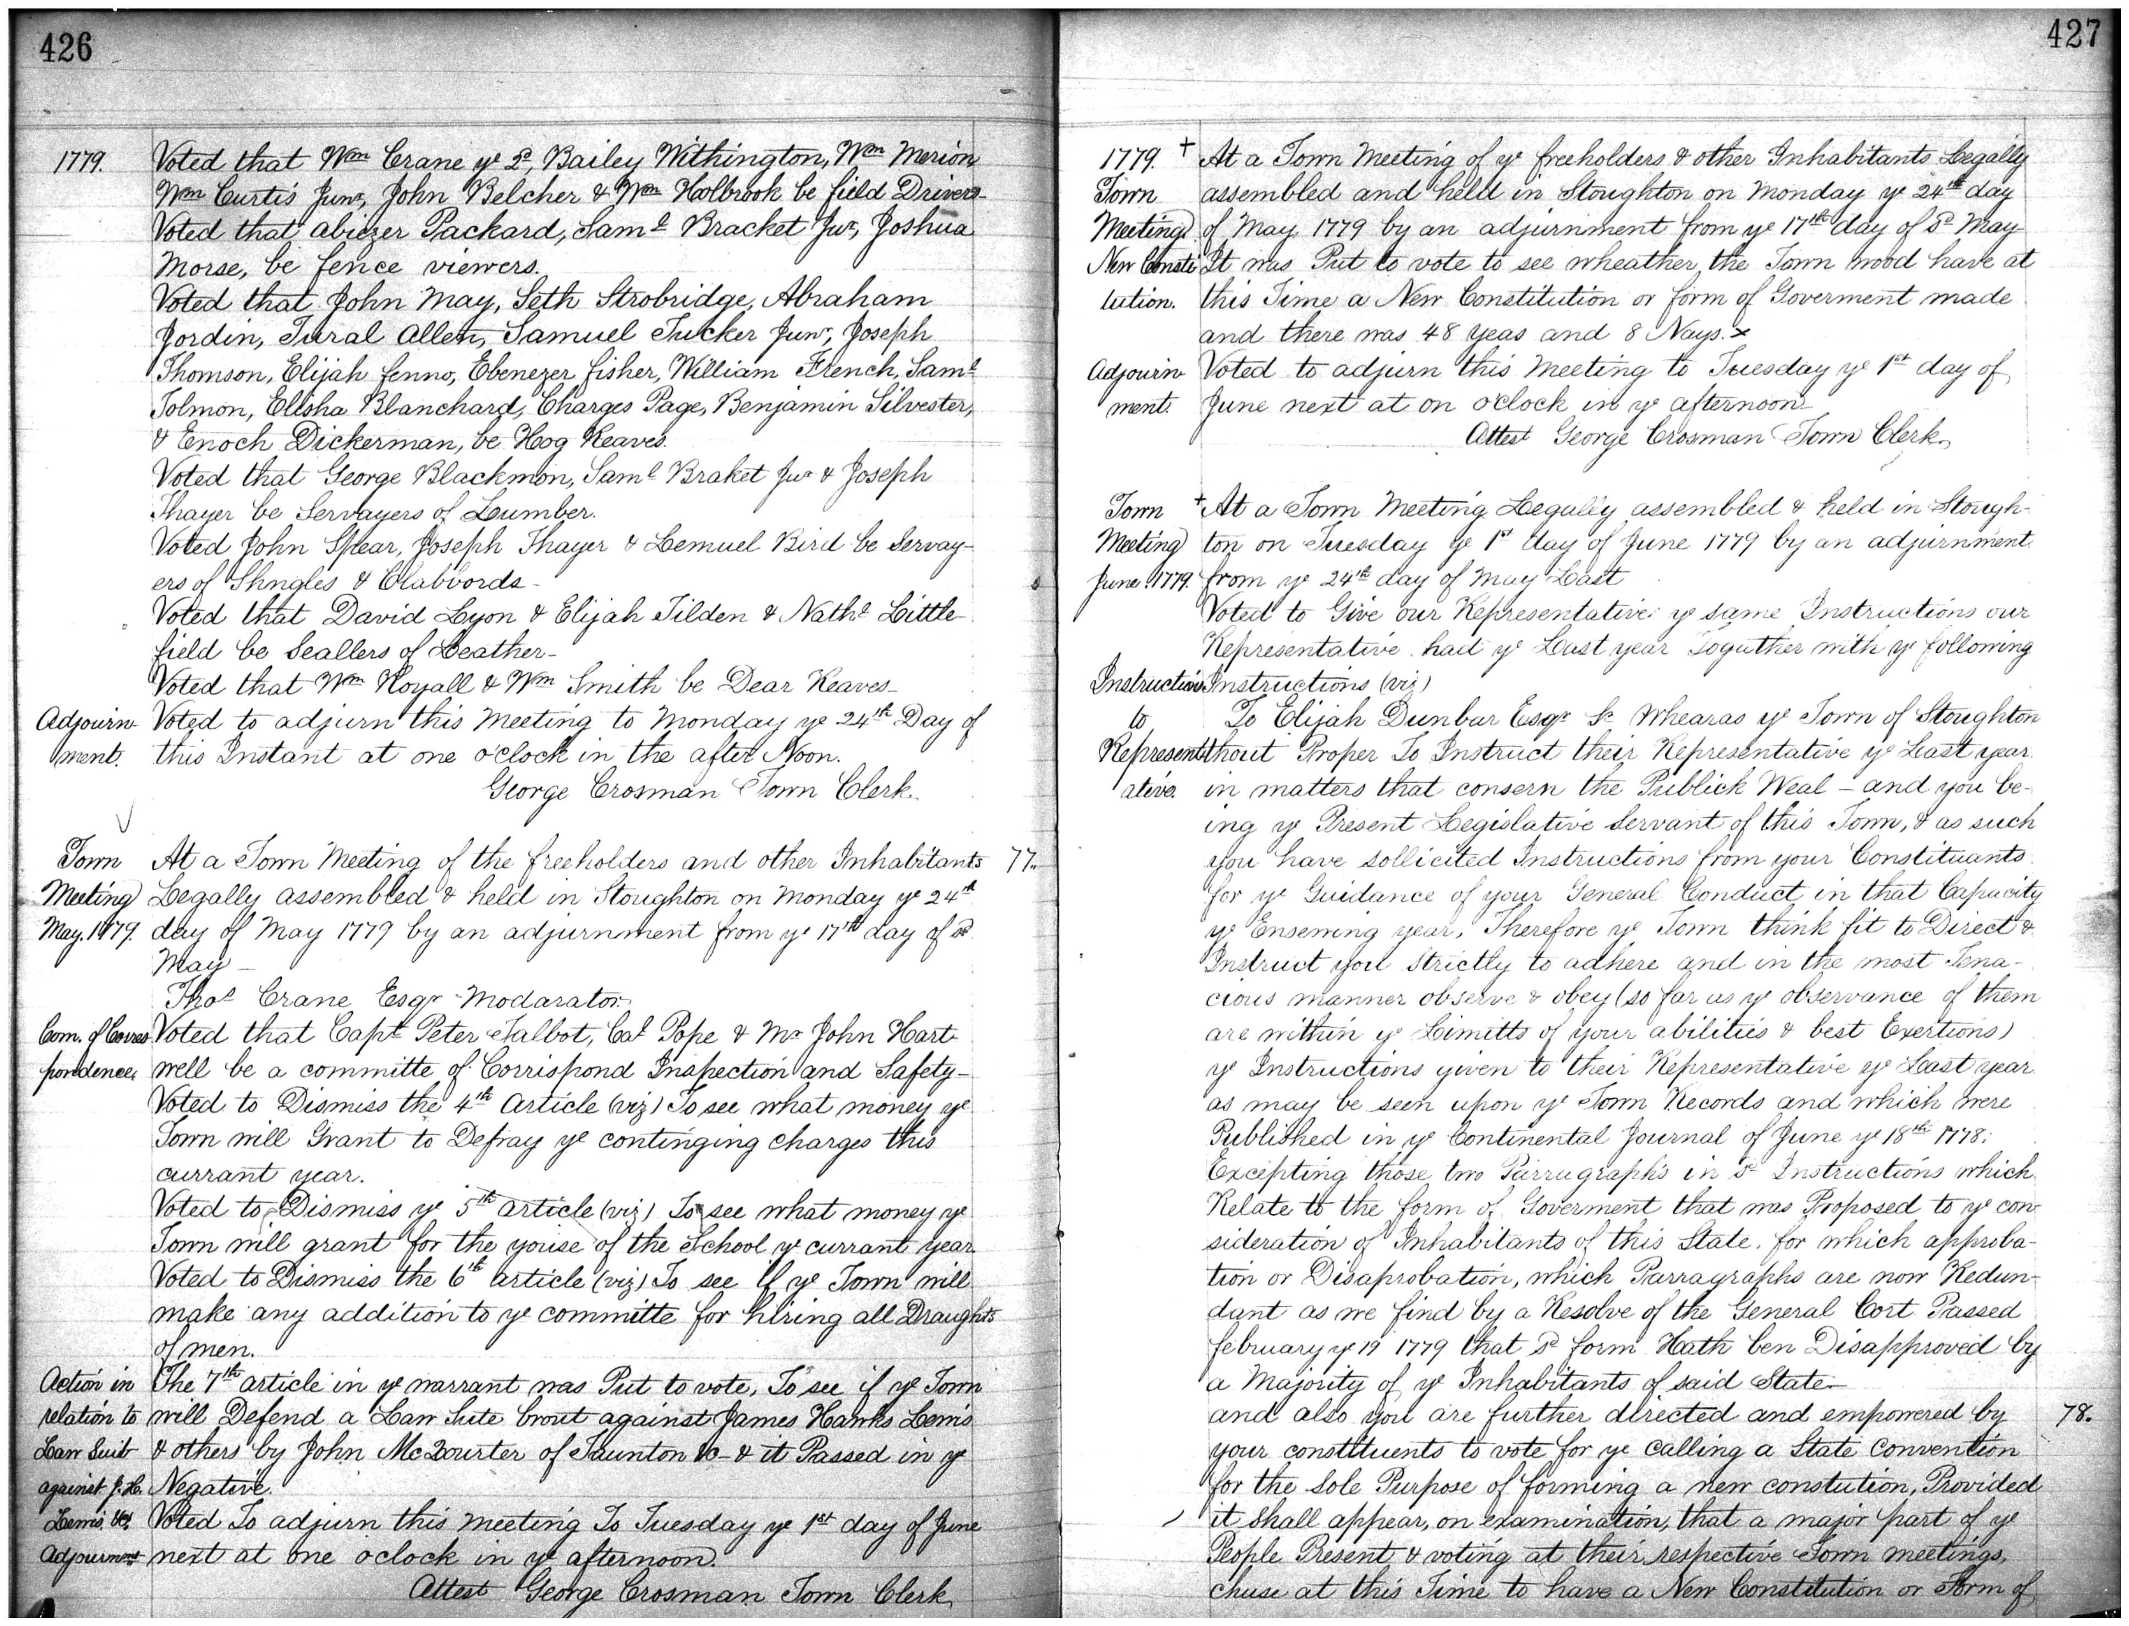 426
1779.
Voted that Wm Crane ye 2d, Bailey Withington, Wm Merion
Wm Curtis Junr, John Belcher & Wm Holbrook be field Drivers-
Voted that abiezer Packard, Saml Bracket Jur, Joshua
Morse, be fence viewers.
Voted that John May, Seth Strobridge, Abraham
Jordin, Tural Allen, Samuel Tucker Junr, Joseph
Thomson, Elijah fenno, Ebenezer fisher, William French, Saml
Tolmon, Elisha Blanchard, Charges Page, Benjamin Silvester,
& Enoch Dickerman, be Hog Reaves.
Voted that George Blackmon, Saml Braket Jur & Joseph
Thayer be Servayers of Lumber.
Voted John Spear, Joseph Thayer & Lemuel Bird be Servay-
ers of Shngles & Clabbords-
Voted that David Lyon & Elijah Tilden & Nathl Little-
field be Seallers of Leather-
Voted that Wm Royall & Wm Smith be Dear Reaves-
Adjourn- Voted to adjurn this Meeting to Monday ye 24th Day of
ment. this Instant at one oclock in the after Noon.
George Crosman Town Clerk.
Town At a Town Meeting of the freeholders and other Inhabitants 77.
Meeting Legally assembled & held in Stoughton on Monday ye 24th
May. 1779. day of May 1779 by an adjurnment from ye 17th day of sd
May-
Thos Crane Esqr Modarator
Com. of Corres Voted that Capt Peter Talbot, Cat Pope & Mr John Hart-
pondence. well be a committe of Corrispond Inspection and Safety-
Voted to Dismiss the 4th Article (viz) To see what money ye
Town will Grant to Defray ye continging charges this
currant year.
Voted to Dismiss ye 5th article (viz) To see what money ye
Town will grant for the youse of the School ye currant year.
Voted to Dismiss the 6th article (viz) To see if ye Town will
make any addition to ye committe for hiring all Draughts
of men.
Action in The 7th article in ye warrant was Put to vote, To see if ye Town
relation to will Defend a Law Sute brout against James Hawks Lewis
Law Suit & others by John McQourter of Taunton &c- & it Passed in ye
against J. H. Negative.
Lewis &c. Voted To adjurn this Meeting To Tuesday ye 1st day of June
Adjournment next at one oclock in ye afternoon.
Attest George Crosman Town Clerk
427
1779. + At a Town Meeting of ye freeholders & other Inhabitants Legally
Town assembled and held in Stoughton on Monday ye 24th day
Meeting of May 1779 by an adjurnment from ye 17th day of Sd May
New Consti It was Put to vote to see wheather the Town wood have at
tution. this Time a New Constitution or form of Goverment made
and there was 48 yeas and 8 Nays. x
Adjourn- Voted to adjurn this Meeting to Tuesday ye 1st day of
ment. June next at on oclock in ye afternoon-
Attest George Crosman Town Clerk
Town + At a Town Meeting Legally assembled & held in Stough-
Meeting ton on Tuesday ye 1st day of June 1779 by an adjurnment
June 1779. from ye 24th day of May Last
Voted to Give our Representative ye same Instructions our
Representative had ye Last year Togather with ye following
Instructions Instructions (viz)
to To Elijah Dunbar Esqr Sr Whearas ye Town of Stoughton
Represent thout Proper To Instruct their Representative ye Last year
ative. in matters that consern the Publick Weal - and you be-
ing ye Present Legislative Servant of this Town, & as such
you have sollicited Instructions from your Constituants
for ye Guidance of your General Conduct in that Capacity
ye Ensewing year, Therefore ye Town think fit to Direct &
Instruct you Strictly to adhere and in the most Tena-
cious manner observe & obey (so far as ye observance of them
are within ye Limitts of your abilities & best Exertions)
ye Instructions given to their Representative ye Last year
as may be seen upon ye Town Records and which were
Published in ye Continental Journal of June ye 18th 1778.
Excepting those two Parrugraphs in sd Instructions which
Relate to the form of Goverment that was Proposed to ye con-
sideration of Inhabitants of this State. for which approba-
tion or Disaprobation, which Parragraphs are now Redun-
dant as we find by a Resolve of the General Cort Passed
february ye 19 1779 that sd form Hath ben Disapproved by
a Majority of ye Inhabitants of said State-
and also you are further directed and empowered by 78.
your constituents to vote for ye calling a State convention
for the Sole Purpose of forming a new constution, Provided
it Shall appear, on examination, that a major part of ye
People Present & voting at their respective Town meetings,
chuse at this Time to have a New Constitution or Form of